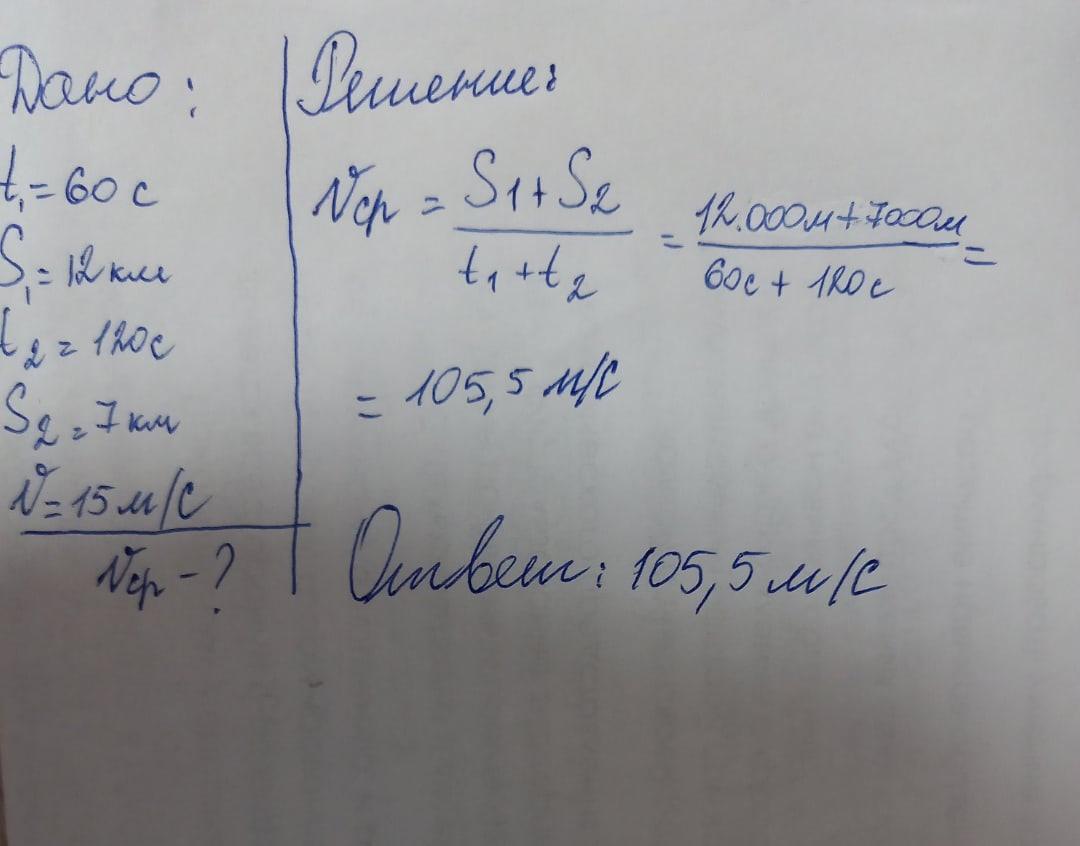 Дано:
t₁=60 с
S₁=12 км
t₂=120с
S₂=7 км
V=15 м/с
Vср -?
Решение:
Vср = (S1+S2)/(t1+t2) = (12.000м+7000м)/(60с+120с) =
= 105,5 м/с
Ответ: 105,5 м/с